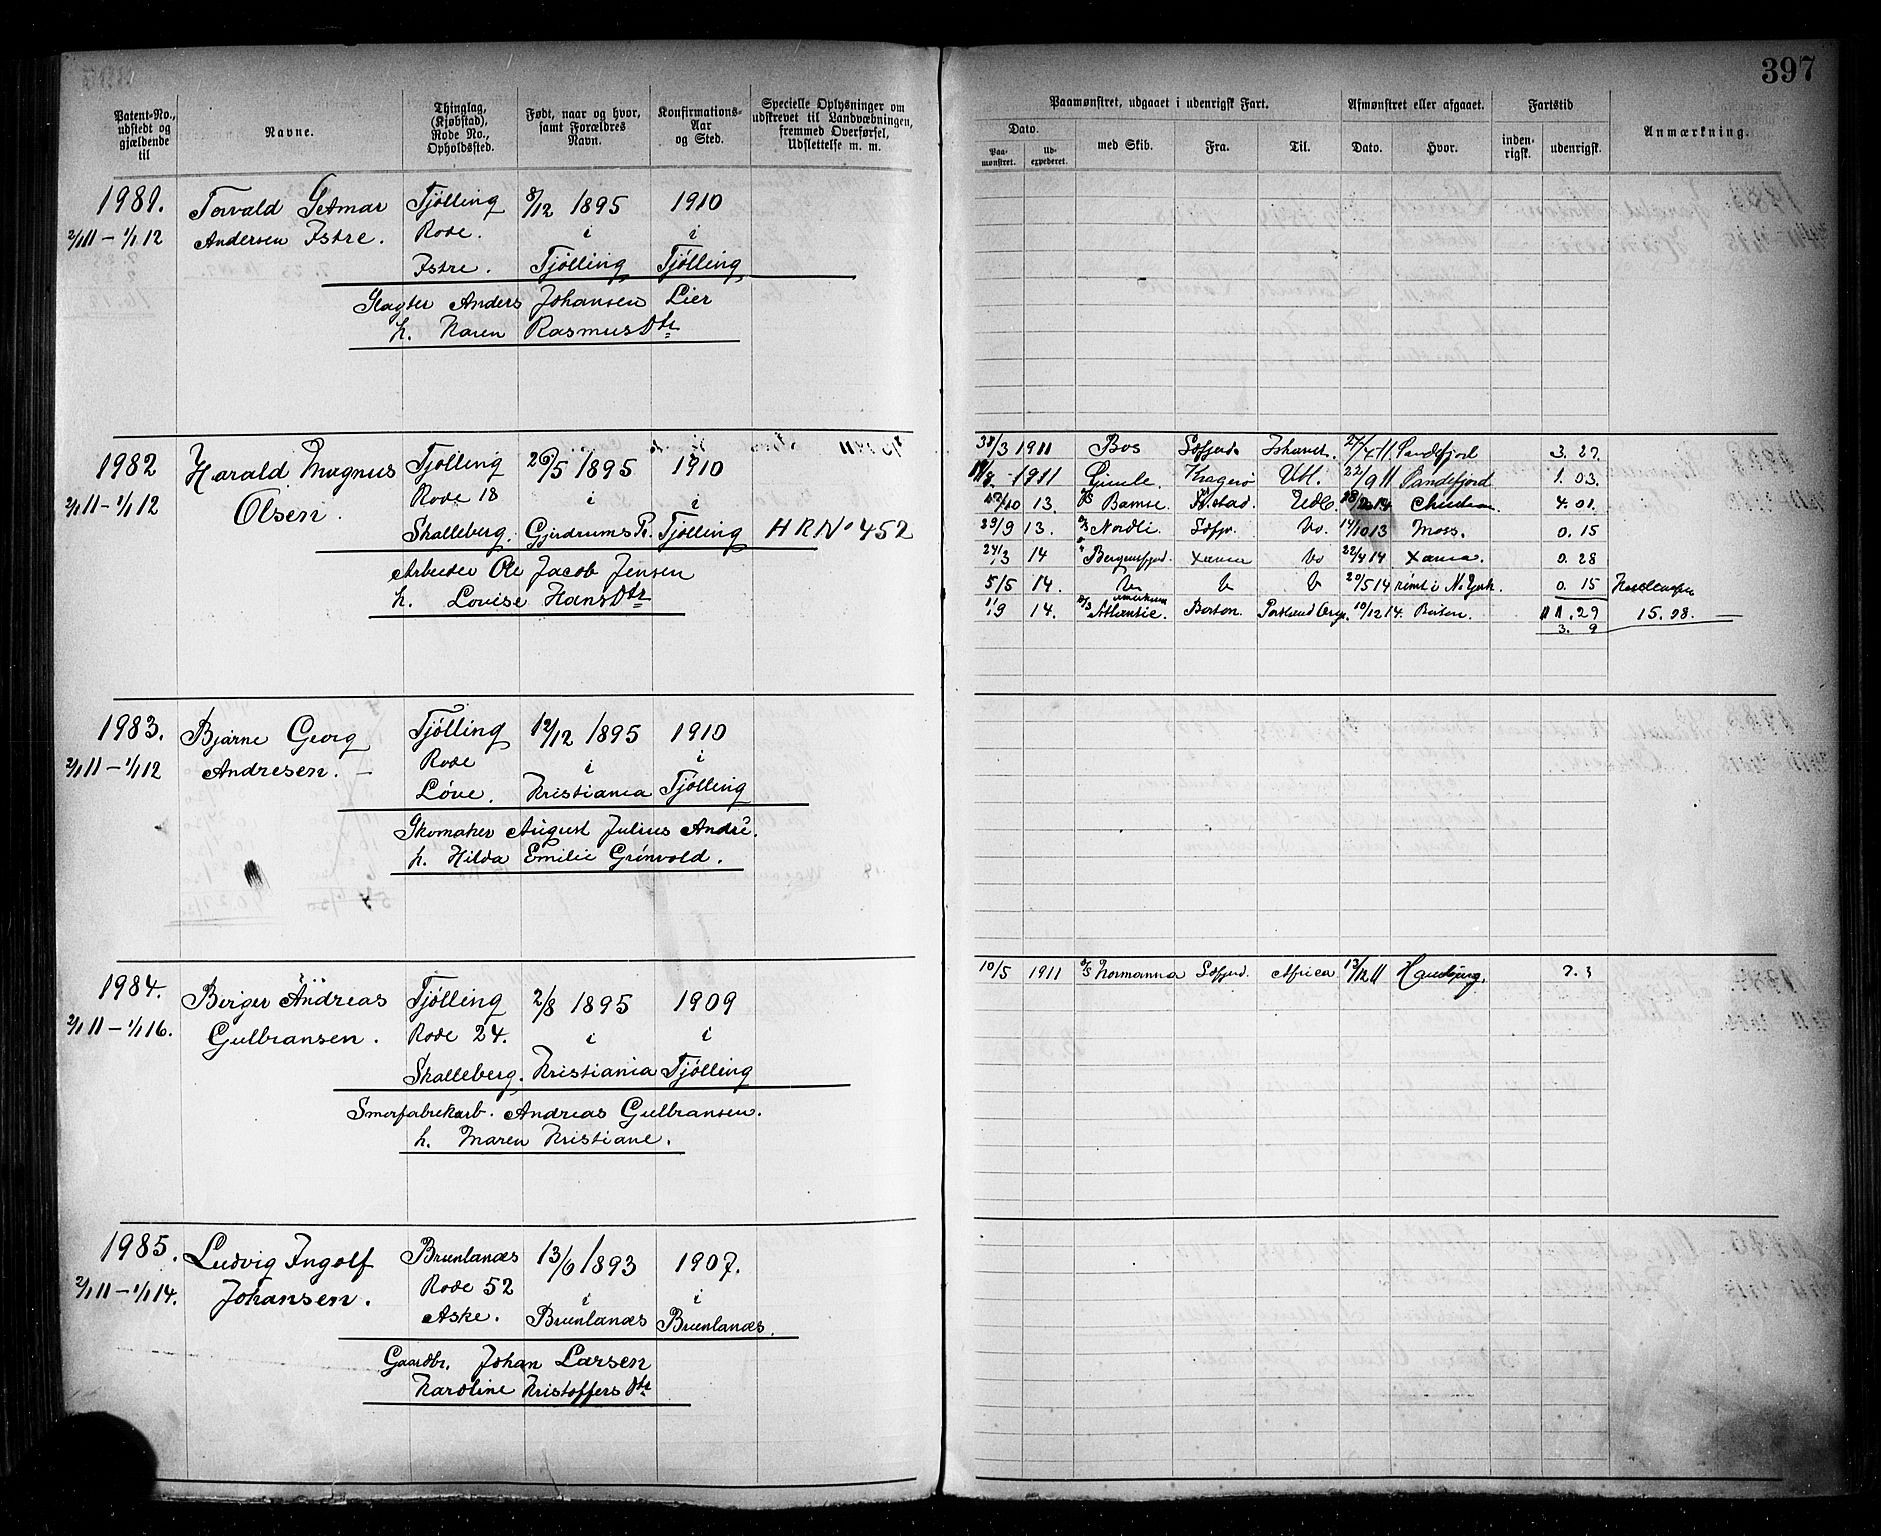 397
Patent-No., udstedt og gjældende til
Navne.
Thinglag, (Kjøbstad), Rode No., Opholdssted.
Født, naar og hvor, samt Forældres Navn.
Konfirmations-Aar og Sted.
Specielle Oplysninger om udskrevet til Landvæbningen, fremmed Overførsel, Udslettelse m. m.
Paamønstret, udgaaet i udenrigsk Fart.
Afmønstret eller afgaaet.
Fartstid
Anmærkning.
Dato.
Paa-mønstret.
Ud-expederet.
med Skib.
Fra.
Til.
Dato.
Hvor.
inden-rigsk.
udenrigsk.
1981. Torvald Getmar Tjølling 8/12 1895 1910
2/1 11 – 1/1 12 Andersen Istre. Rode. i i
Istre. Tjølling Tjølling
Slagter Anders Johansen Lier
h. Karen Rasmusdtr
1982 Harald Magnus Tjølling 26/5 1895 1910
2/1 11 – 1/1 12 Olsen. Rode 18 i i
Skalleberg. Gjerdrums Pr. Tjølling HRNo 452
Arbeider Ole Jacob Jensen
h. Lovise Hansdtr
1911 Bos Ishavet. Sandefjord 3. 27.
1911 Gimle. Kragerø Udl. 22/9 11 Sandefjord 1. 03.
13. Bamse. 4. 01.
29/9 13. Nordli Do. 14/10 13 Moss. 0. 15
24/3 14 Bergensfjord. Xania Do 22/4 14 Xania. 0. 28
5/5 14. Do 20/5 14 rømt i N. York. 0. 15
1/9 14. Atlantic. Boston. Portland 10/12 14. Boston. 11. 29 15. 08.
3. 9
1983. Bjarne Georg Tjølling 12/12 1895 1910
2/1 11 – 1/1 12 Andresen. – Rode i i
Løve. Kristiania Tjølling
Skomaker August Julius André.
h. Hilda Emilie Grönvold.
1984. Berger Andreas Tjølling 2/8 1895 1909
2/1 11 – 1/1 16. Gulbransen. Rode 24. i i
Skalleberg. Kristiania Tjølling
Smørfabrikarb. Andreas Gulbransen.
h. Maren Kristiane.
10/5 1911 Normanna Africa 13/12 11 Hamburg. 7. 3
1985. Ludvig Ingolf Brunlanæs 13/6 1893 1907.
2/1 11 – 1/1 14. Johansen. Rode 52 i i
Aske. Brunlanæs Brunlanæs.
Gaardbr. Johan Larsen
Karoline Kristoffersdtr